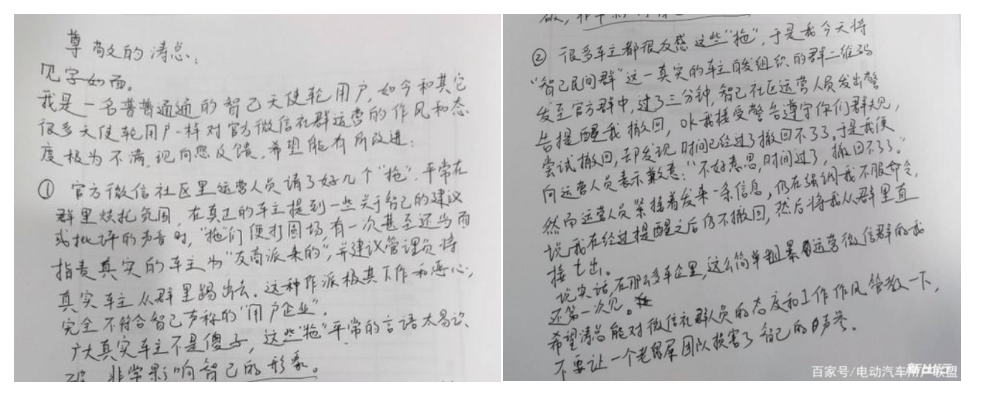 尊敬的涛总：
见字如面。
我是一名普普通通的智己天使轮用户，如今和其它
很多天使轮用户一样对官方微信社群运营的作风和态
度极为不满，现向您反馈，希望能有所改进：
① 官方微信社区里运营人员请了好几个“拖”，平常在
群里烘托氛围，在真正的车主提到一些关于智己的建议
或批评的声音时，“拖们”便打圆场，有一次甚至还当面
指责真实的车主为“友商派来的”，并建议管理员将
真实车主从群里踢出去。这种作派极其下作和恶心，
完全不符合智己声称的“用户企业”。
广大真实车主不是傻子，这些“拖”平常的言语太易识
破，非常影响智己的形象。
② 很多车主都很反感这些“拖”，于是我今天将
“智己民间群”这一真实的车主自发组织的群二维码
发至官方群中，过了三分钟，智己社区运营人员发出警
告提醒我撤回，OK我接受警告遵守你们群规，
尝试撤回，却发现时间已经过了撤回不了了，于是我便
向运营人员表示歉意：“不好意思，时间过了，撤回不了”。
然而运营人员紧接着发来一条信息，仍在强调我不服命令，
说我在经过提醒之后仍不撤回，然后将我从群里直
接丢出。
说实话，在那么多车企里，这么简单粗暴运营微信群的我
还第一次见。
希望涛总能对微信社群人员的态度和工作作风管教一下，
不要让一个老鼠屎团队损害了智己的声誉。
百家号/电动汽车用户联盟